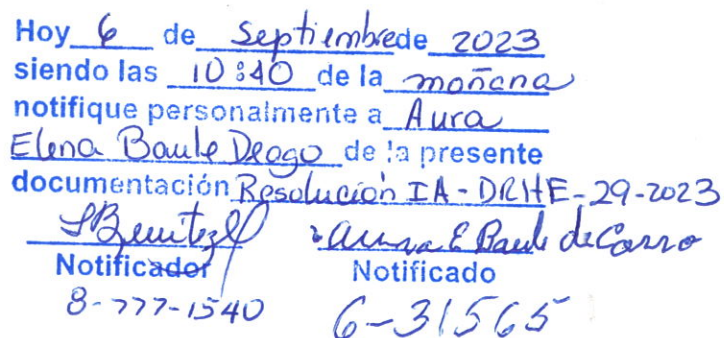 Hoy 6 de Septiembre de 2023
siendo las 10:40 de la mañana
notifique personalmente a Aura
Elena Baule Deago de la presente
documentación Resolución IA-DRHE-29-2023
SBenitez Aura E Baule de Carro
Notificador Notificado
8-777-1540 6-31565